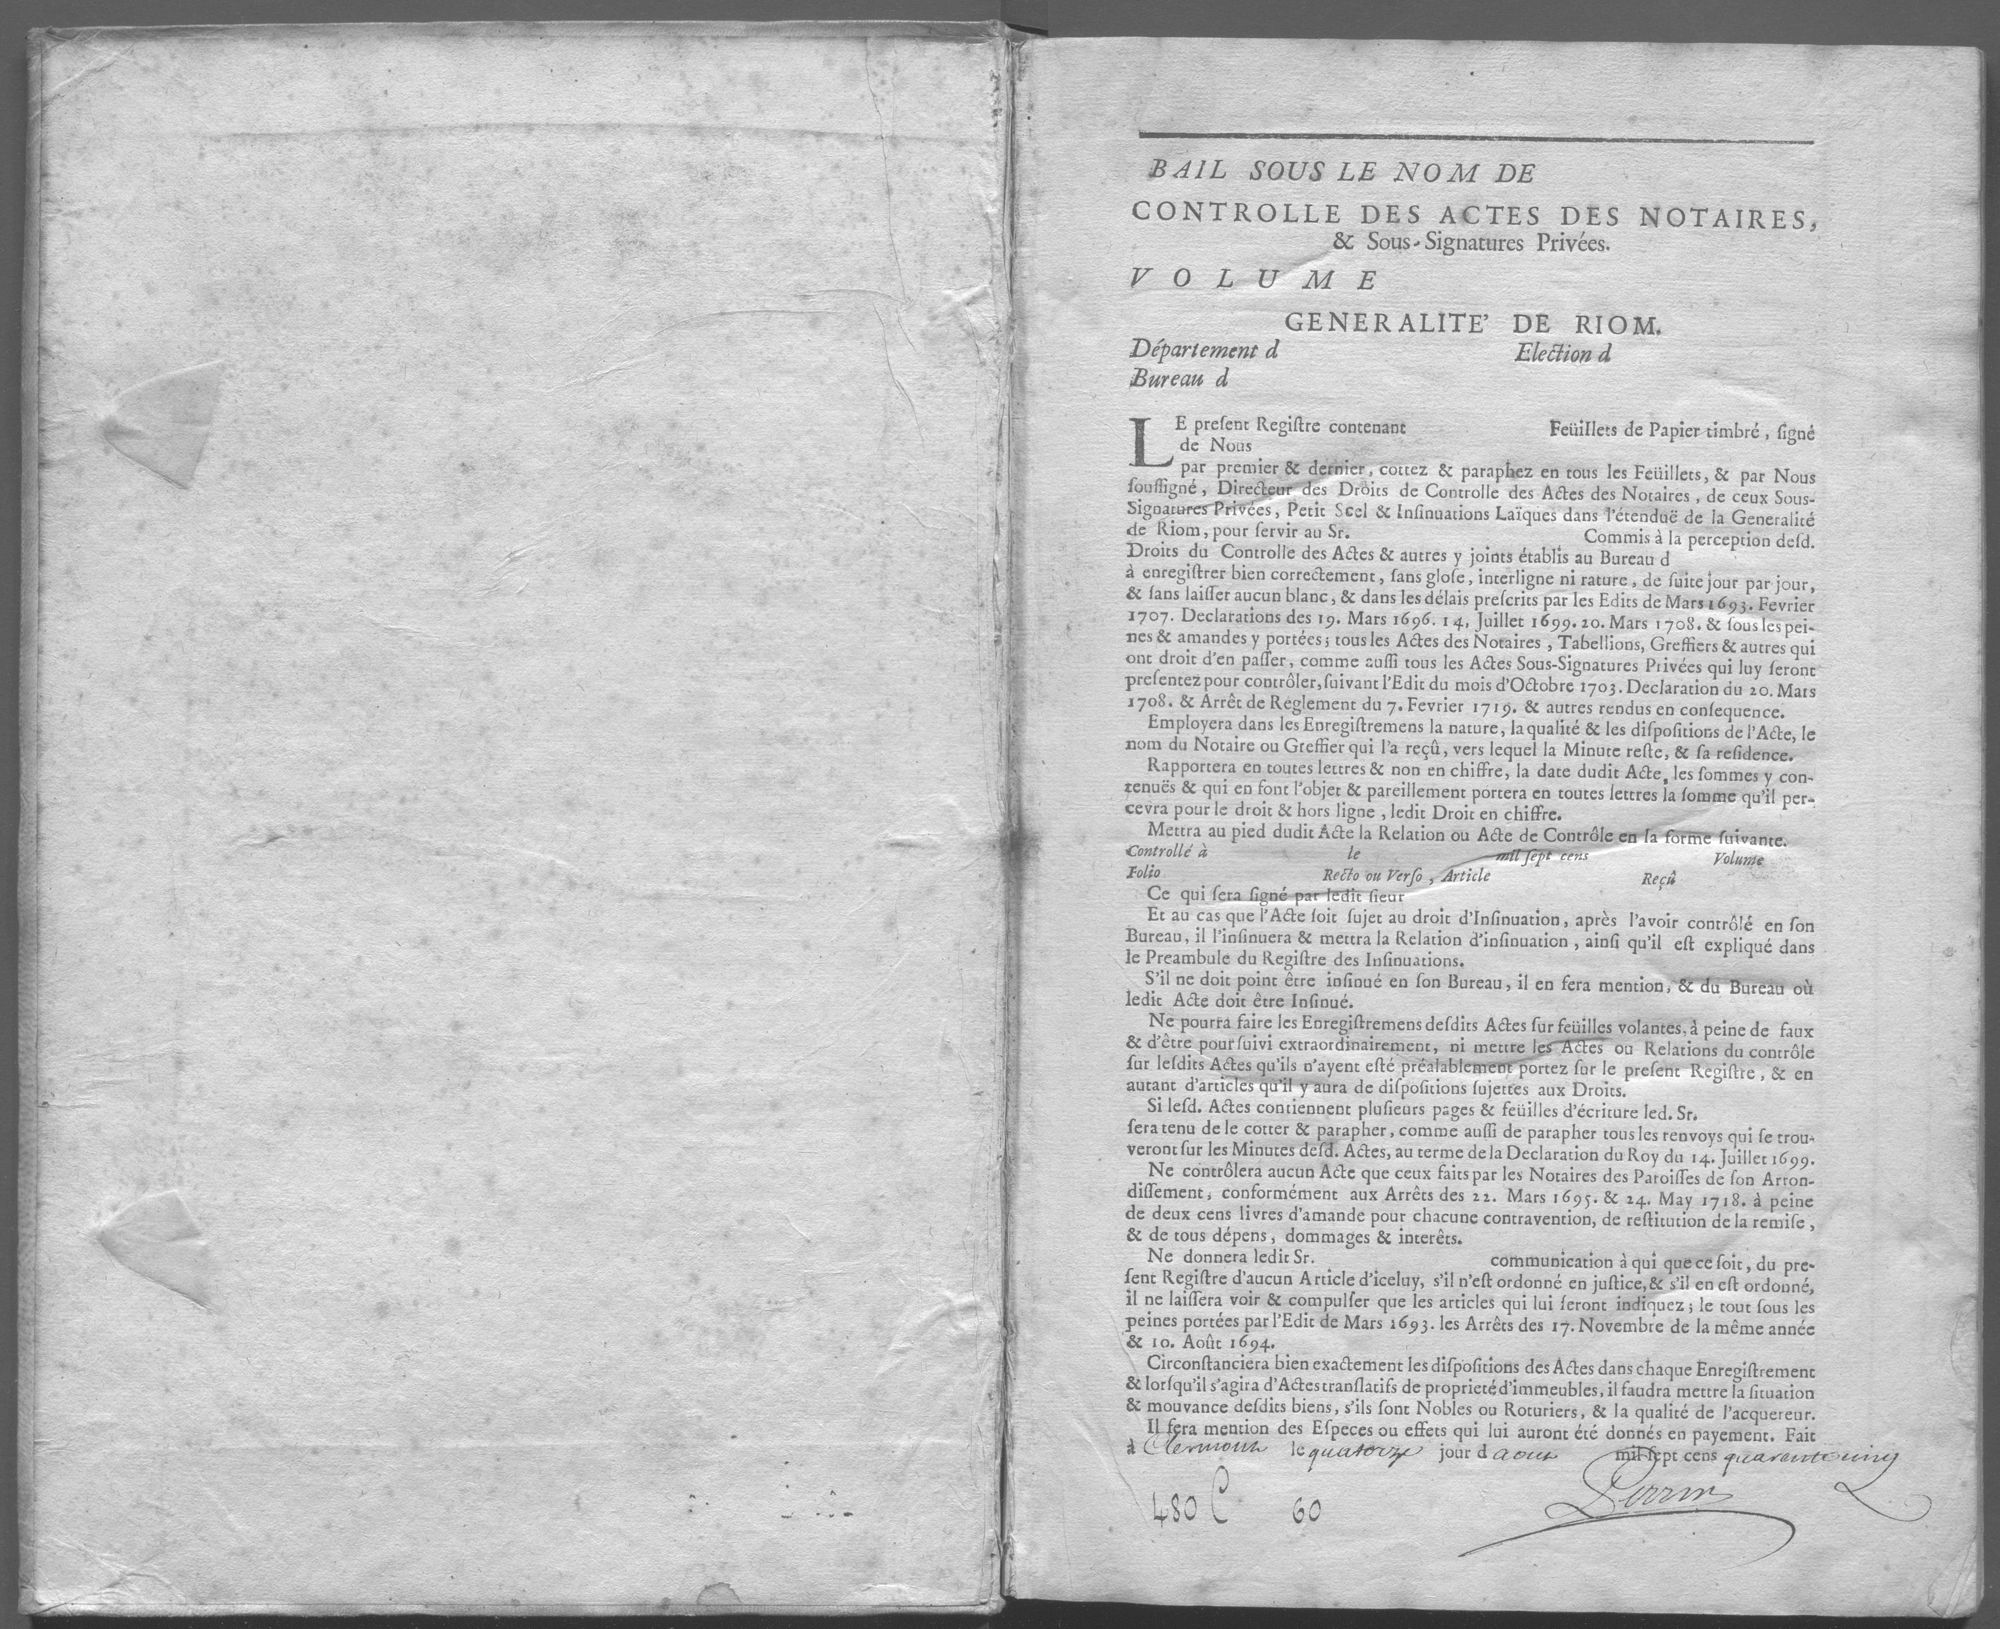 BAIL SOUS LE NOM DE
CONTROLLE DES ACTES DES NOTAIRES,
& Sous-Signatures Privées.
VOLUME
GENERALITE' DE RIOM.
Département d Election d
Bureau d
LE preſent Regiſtre contenant Feüillets de Papier timbré, ſigné
de Nous
par premier & dernier, cottez & paraphez en tous les Feüillets, & par Nous
ſouſſigné, Directeur des Droits de Controlle des Actes des Notaires, de ceux Sous-
Signatures Privées, Petit Scel & Inſinuations Laïques dans l'étenduë de la Generalité
de Riom, pour ſervir au Sr. Commis à la perception deſd.
Droits du Controlle des Actes & autres y joints établis au Bureau d
à enregiſtrer bien correctement, ſans gloſe, interligne ni rature, de ſuite jour par jour,
& ſans laiſſer aucun blanc, & dans les délais preſcrits par les Edits de Mars 1693. Fevrier
1707. Declarations des 19. Mars 1696. 14. Juillet 1699. 20. Mars 1708. & ſous les pei-
nes & amandes y portées; tous les Actes des Notaires, Tabellions, Greffiers & autres qui
ont droit d'en paſſer, comme auſſi tous les Actes Sous-Signatures Privées qui luy ſeront
preſentez pour contrôler, ſuivant l'Edit du mois d'Octobre 1703. Declaration du 20. Mars
1708. & Arrêt de Réglement du 7. Fevrier 1719. & autres rendus en conſequence.
Employera dans les Enregiſtremens la nature, la qualité & les diſpoſitions de l'Acte, le
nom du Notaire ou Greffier qui l'a reçû, vers lequel la Minute reſte, & ſa reſidence.
Rapportera en toutes lettres & non en chiffre, la date dudit Acte, les ſommes y con-
tenuës & qui en font l'objet & pareillement portera en toutes lettres la ſomme qu'il per-
cevra pour le droit & hors ligne, ledit Droit en chiffre.
Mettra au pied dudit Acte la Relation ou Acte de Contrôle en ſa forme ſuivante.
Controllé à le mil ſept cens Volume
Folio Recto ou Verſo, Article Reçû
Ce qui ſera ſigné par ledit ſieur
Et au cas que l'Acte ſoit ſujet au droit d'Inſinuation, après l'avoir contrôlé en ſon
Bureau, il l'inſinuera & mettra la Relation d'inſinuation, ainſi qu'il eſt expliqué dans
le Preambule du Regiſtre des Inſinuations.
S'il ne doit point être inſinué en ſon Bureau, il en fera mention, & du Bureau où
ledit Acte doit être Inſinué.
Ne pourra faire les Enregiſtremens deſdits Actes ſur feüilles volantes, à peine de faux
& d'être pourſuivi extraordinairement, ni mettre les Actes ou Relations du contrôle
ſur leſdits Actes qu'ils n'ayent eſté préalablement portez ſur le preſent Regiſtre, & en
autant d'articles qu'il y aura de diſpoſitions ſujettes aux Droits.
Si leſd. Actes contiennent pluſieurs pages & feüilles d'écriture led. Sr.
ſera tenu de le cotter & parapher, comme auſſi de parapher tous les renvoys qui ſe trou-
veront ſur les Minutes deſd. Actes, au terme de la Declaration du Roy du 14. Juillet 1699.
Ne contrôlera aucun Acte que ceux faits par les Notaires des Paroiſſes de ſon Arron-
diſſement, conformément aux Arrêts des 22. Mars 1695. & 24. May 1718. à peine
de deux cens livres d'amande pour chacune contravention, de reſtitution de la remiſe,
& de tous dépens, dommages & interêts.
Ne donnera ledit Sr. communication à qui que ce ſoit, du pre-
ſent Regiſtre d'aucun Article d'iceluy, s'il n'eſt ordonné en juſtice, & s'il en eſt ordonné,
il ne laiſſera voir & compulſer que les articles qui lui ſeront indiquez; le tout ſous les
peines portées par l'Edit de Mars 1693. les Arrêts des 17. Novembre de la même année
& 10. Août 1694.
Circonſtanciera bien exactement les diſpoſitions des Actes dans chaque Enregiſtrement
& lorſqu'il s'agira d'Actes tranſlatifs de proprieté d'immeubles, il faudra mettre la ſituation
& mouvance deſdits biens, s'ils ſont Nobles ou Roturiers, & la qualité de l'acquereur.
Il fera mention des Eſpeces ou effets qui lui auront été donnés en payement. Fait
à Clermont le quatorze jour d aout mil ſept cens quarente cinq
480 C 60 Perrin